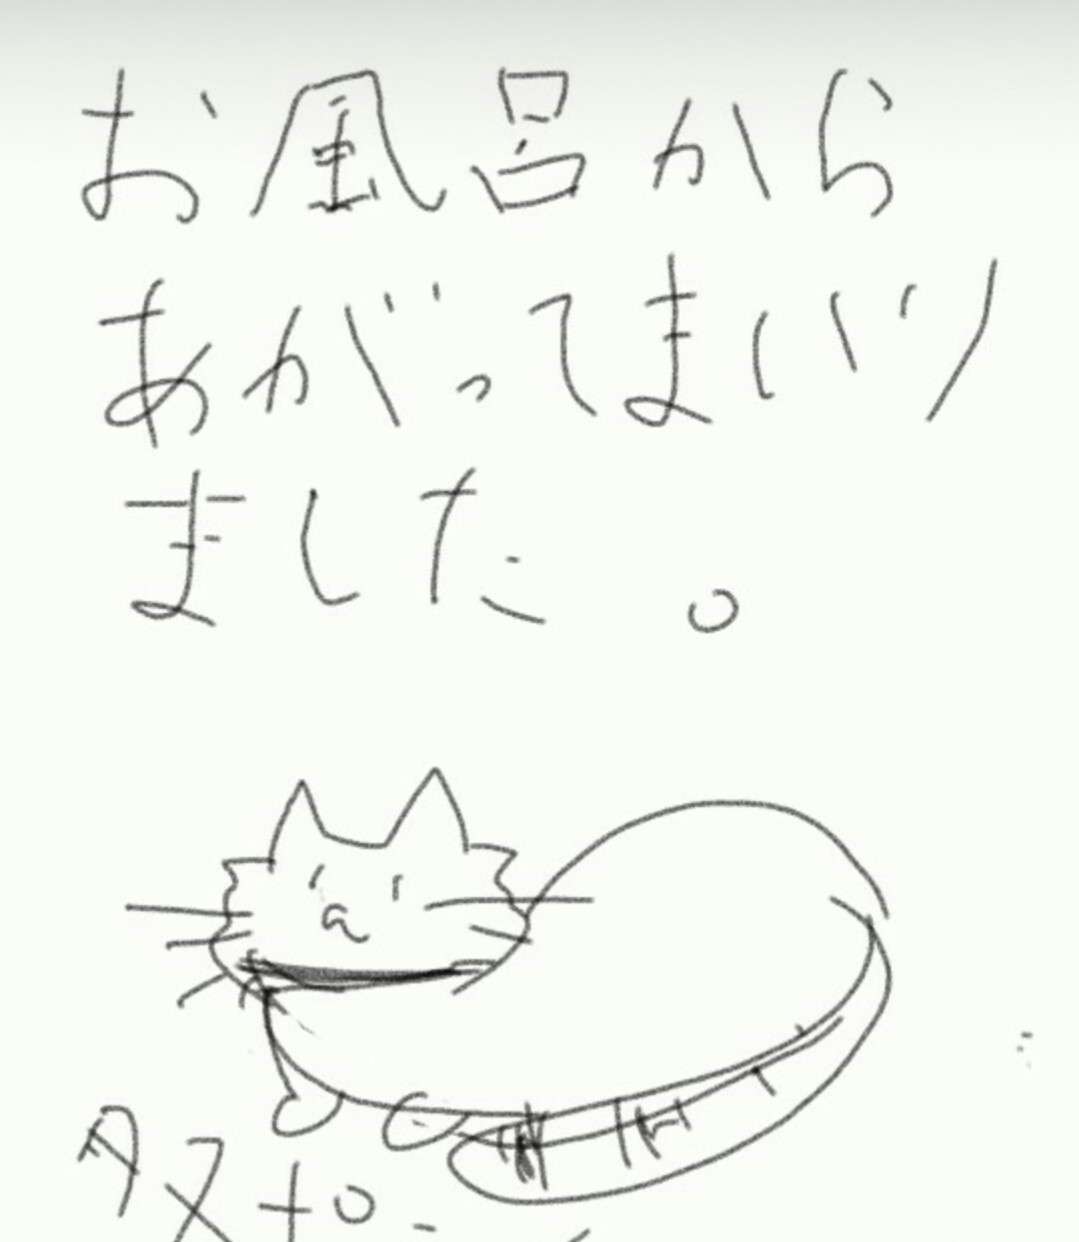 お風呂から
あがってまいり
ました。